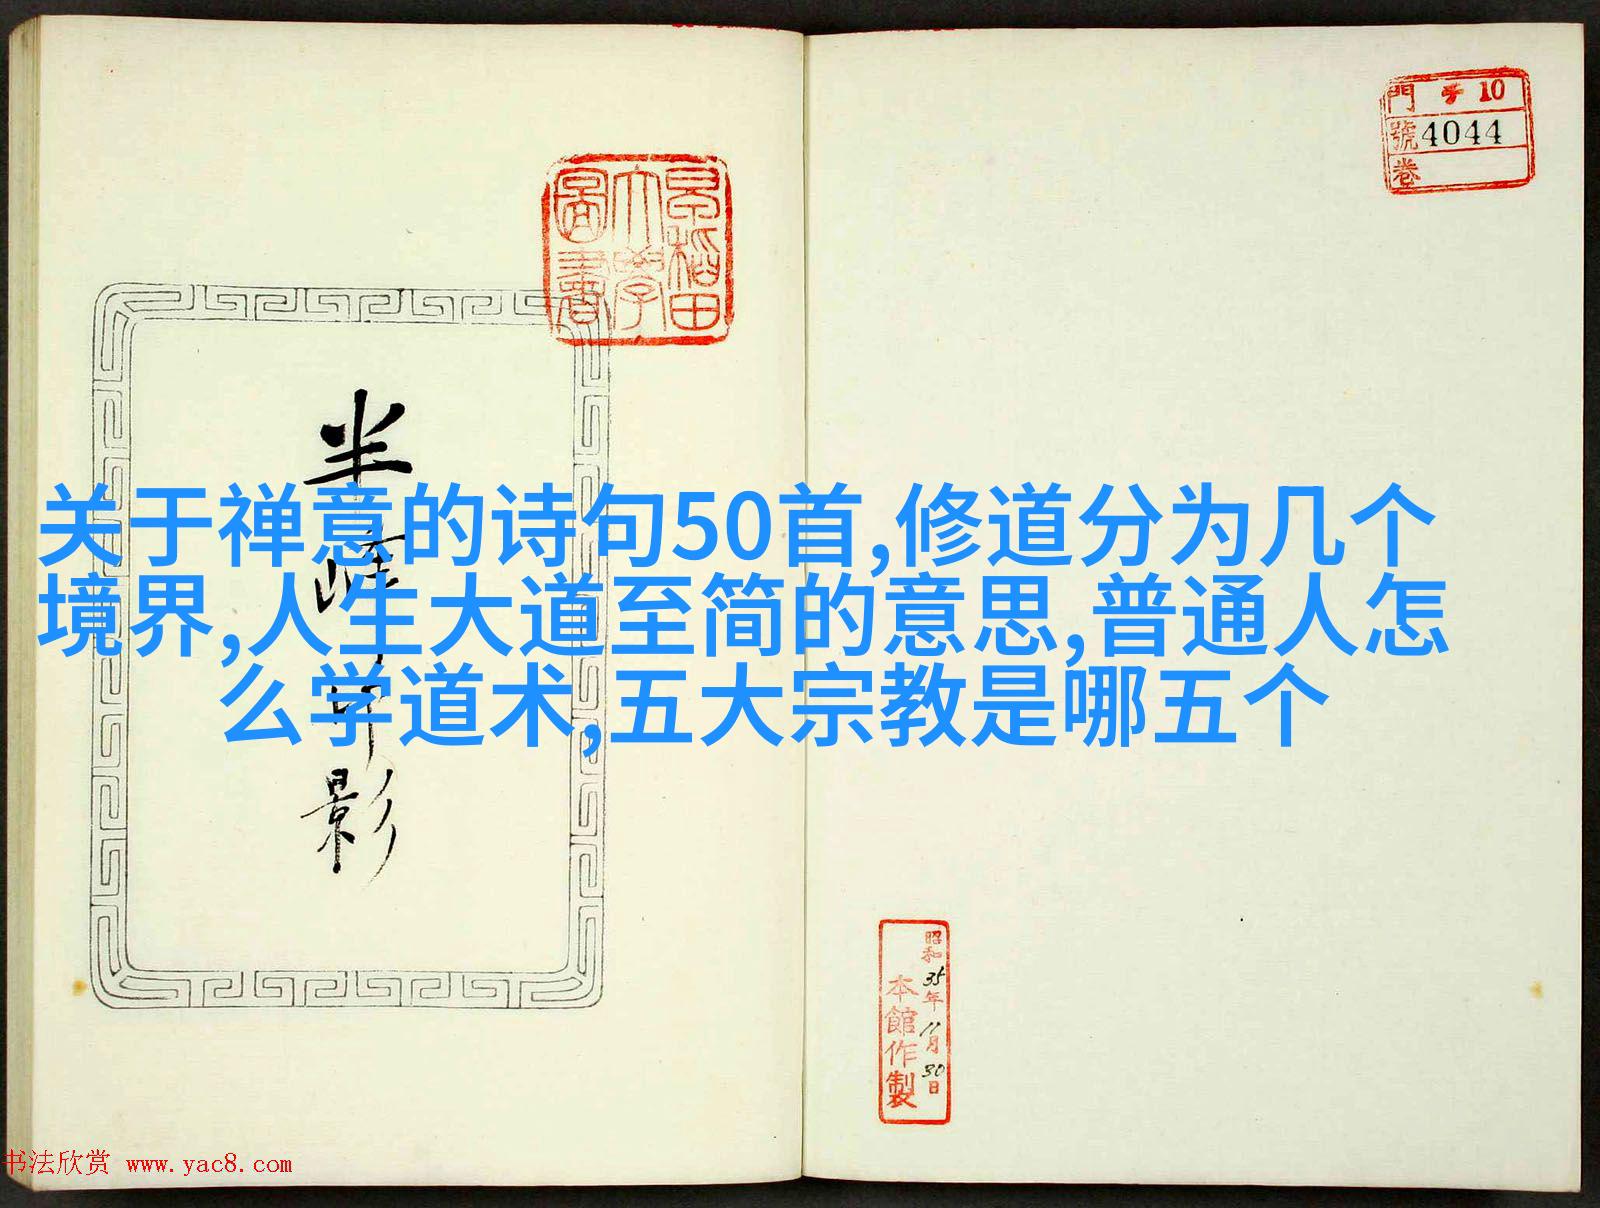 門 チ 10
號 4044
卷
早稲田
大學
圖書
半峰印影
关于禅意的诗句50首,修道分为几个
境界,人生大道至简的意思,普通人怎
么学道术,五大宗教是哪五个
昭和35年11月30日
本館作製
书法欣赏 www.yac8.com